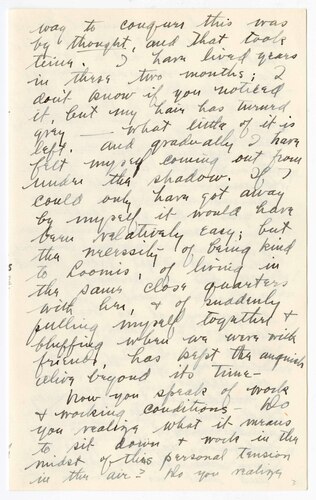 way to conquer this was
by thought, and that took
time. I have lived years
in these two months; I
don't know if you noticed
it, but my hair has turned
grey — what little of it is
left. And gradually I have
felt myself coming out from
under the shadow. If I
could only have got away
by myself it would have
been relatively easy; but
the necessity of being kind
to Loomis, of living in
the same close quarters
with her, & of suddenly
pulling myself together &
bluffing when we were with
friends, has kept the anguish
alive beyond its time —
Now you speak of work
& working conditions — Do
you realize what it means
to sit down & work in the
midst of this personal tension
in the air? Do you realize